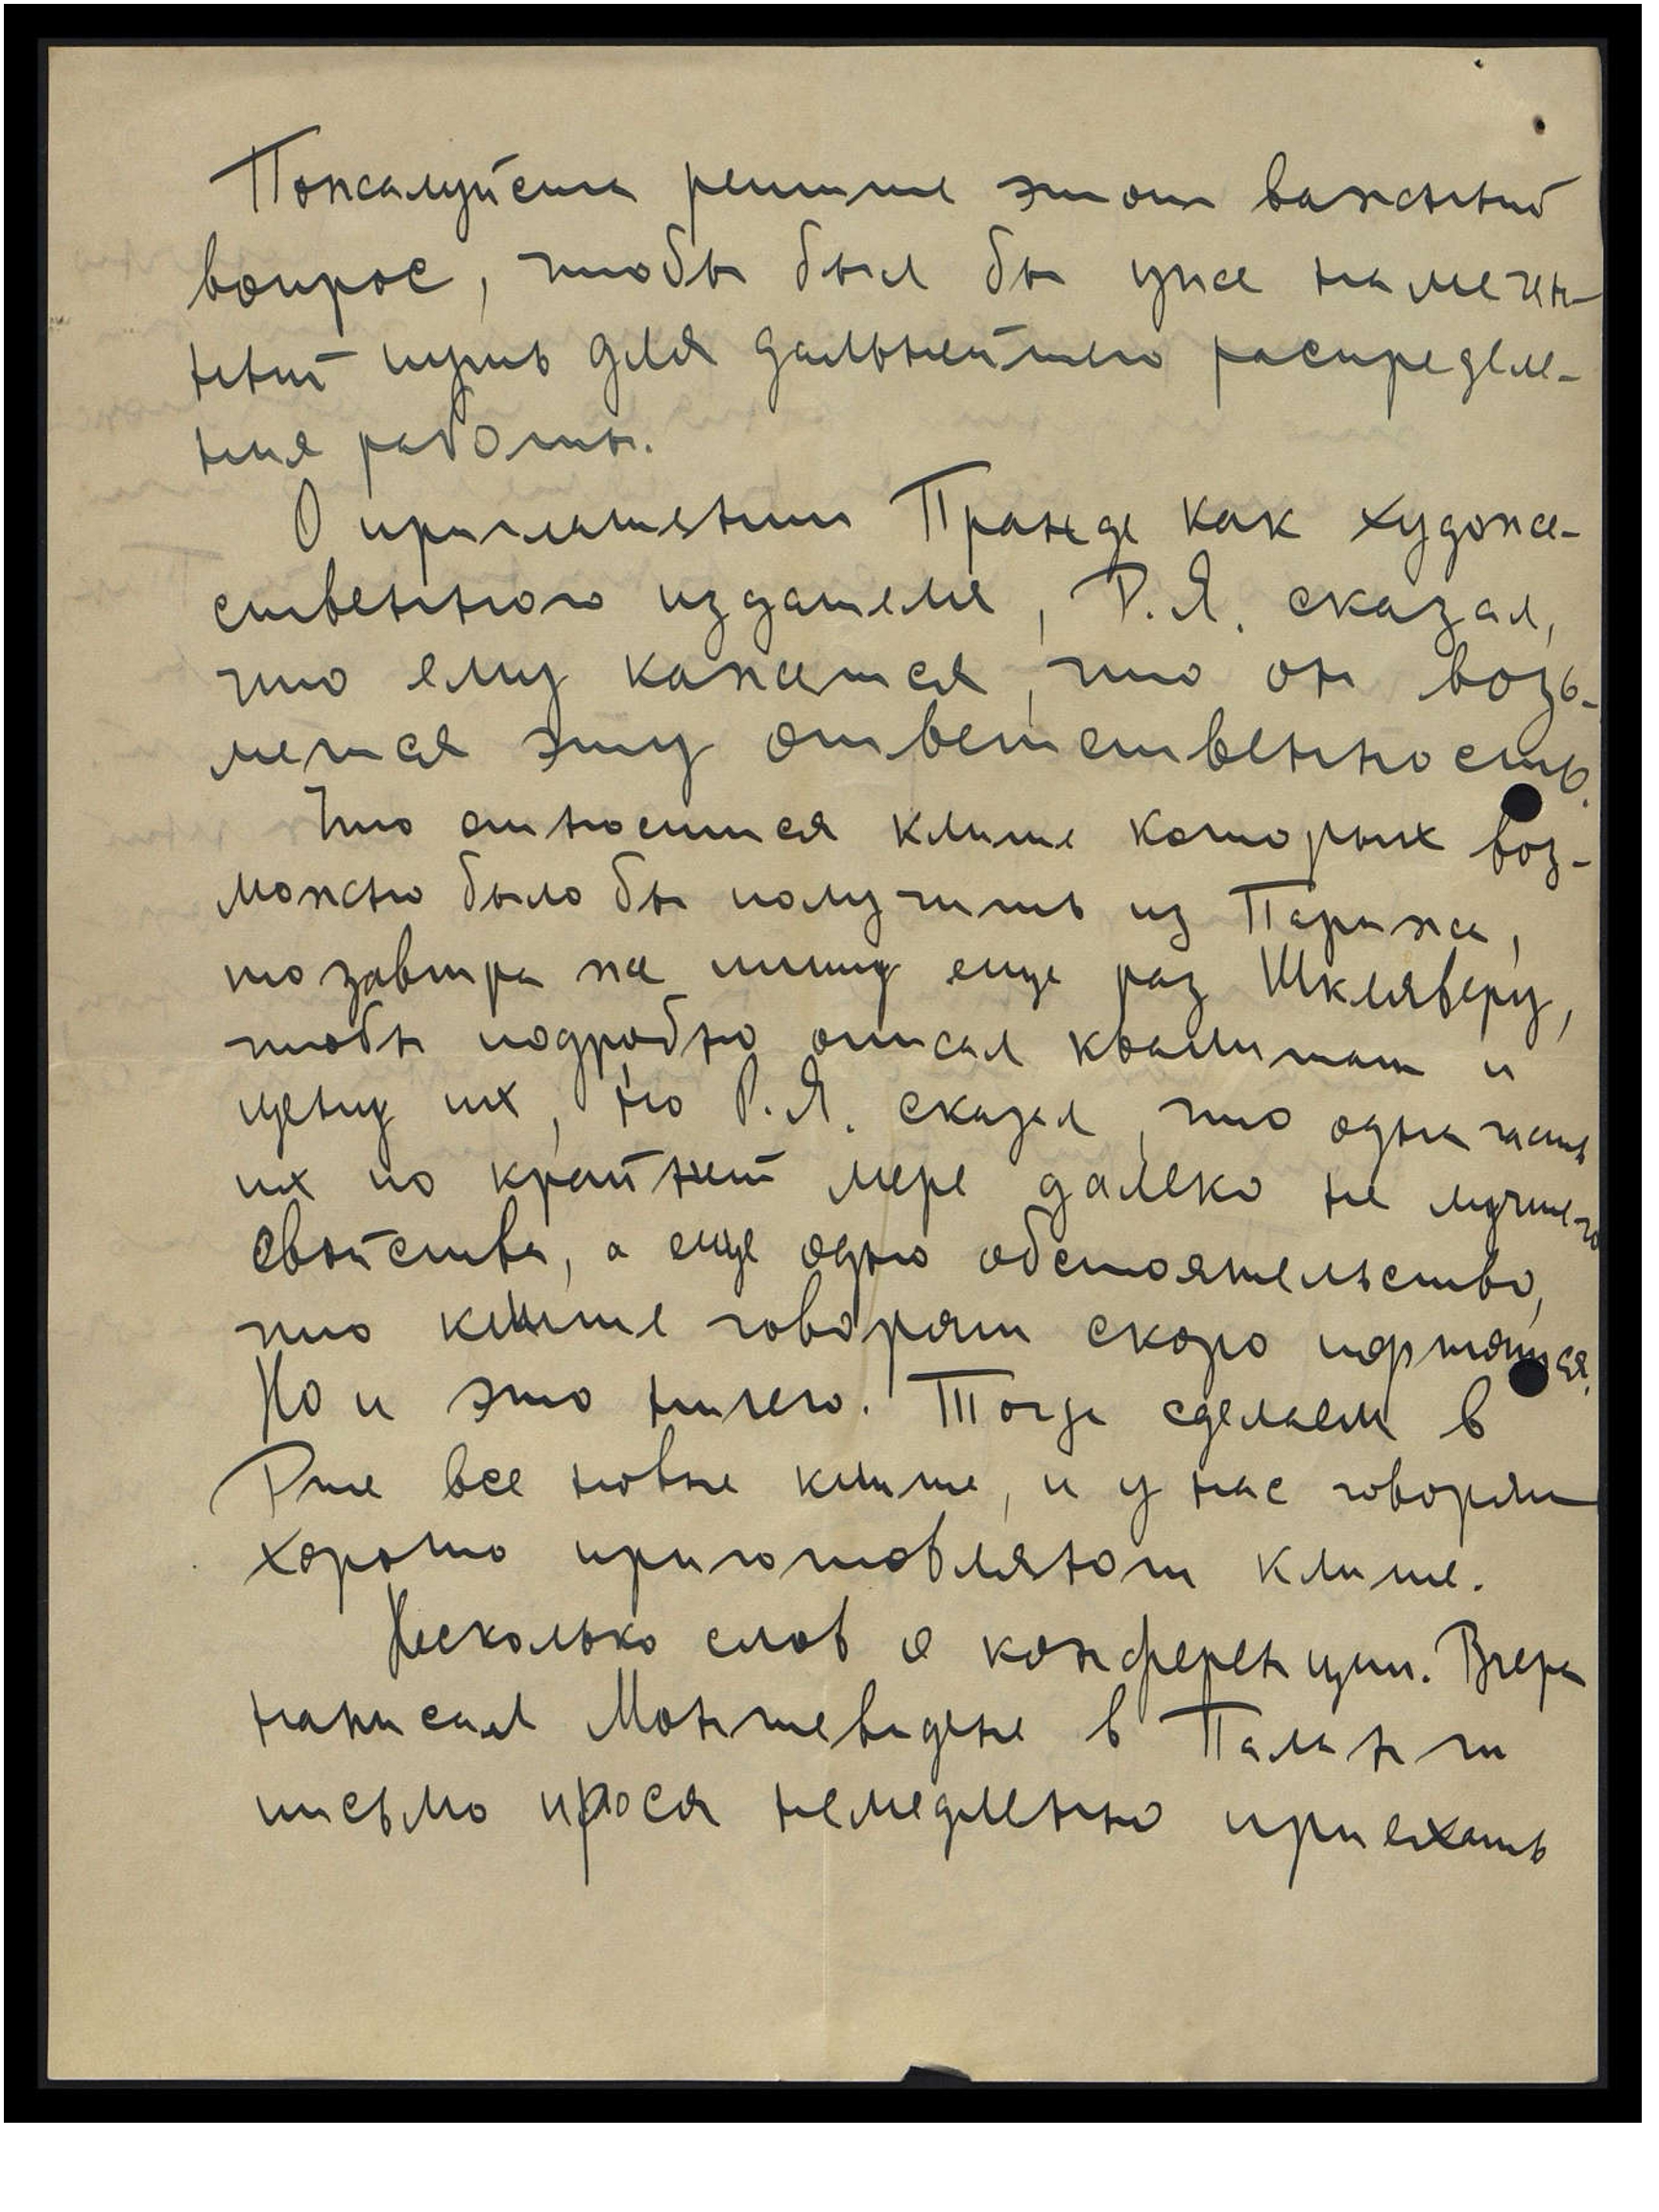 Пожалуйста решите этот важный
вопрос, чтобы был бы уже намечен-
ный путь для дальнейшего распределе-
ния работы.
О приглашении Пранде как художе-
ственного издателя, Р.Я. сказал,
что ему кажется, что он возь-
мется эту ответственность.
Что относится клише которых воз-
можно было бы получить из Парижа,
то завтра же пишу еще раз Шкляверу,
чтобы подробно описал квалитат и
цену их, но Р.Я. сказал, что одна часть
их по крайней мере далеко не лучшего
свойства, а еще одно обстоятельство,
что клише говорят скоро портятся.
Но и это ничего. Тогда сделаем в
Риге все новые клише, и у нас говорят
хорошо приготовляют клише.
Несколько слов о конференции. Вчера
написал Монтвидене в Паланги
письмо прося немедленно приехать